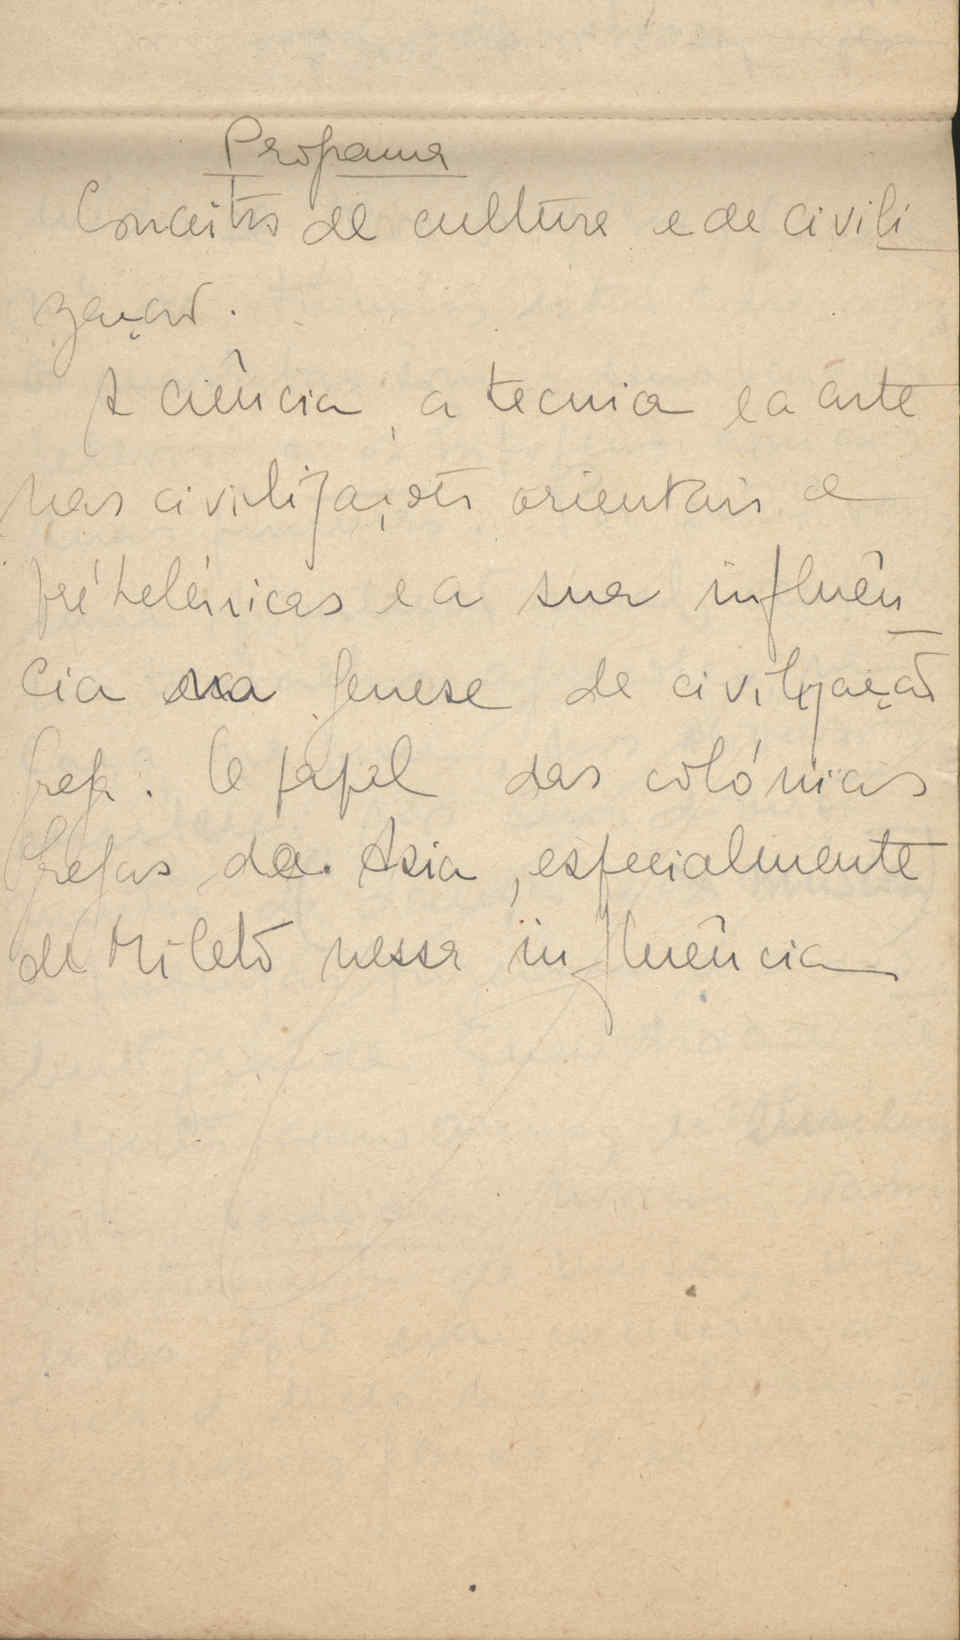 Programa
Conceitos de cultura e de civili
zação.
A ciência, a tecnia e a arte
nas civilizações orientais e
pré-helénicas e a sua influên
cia na genese da civilização
grega. O papel das colónias
gregas da Asia, especialmente
de Mileto nessa influência